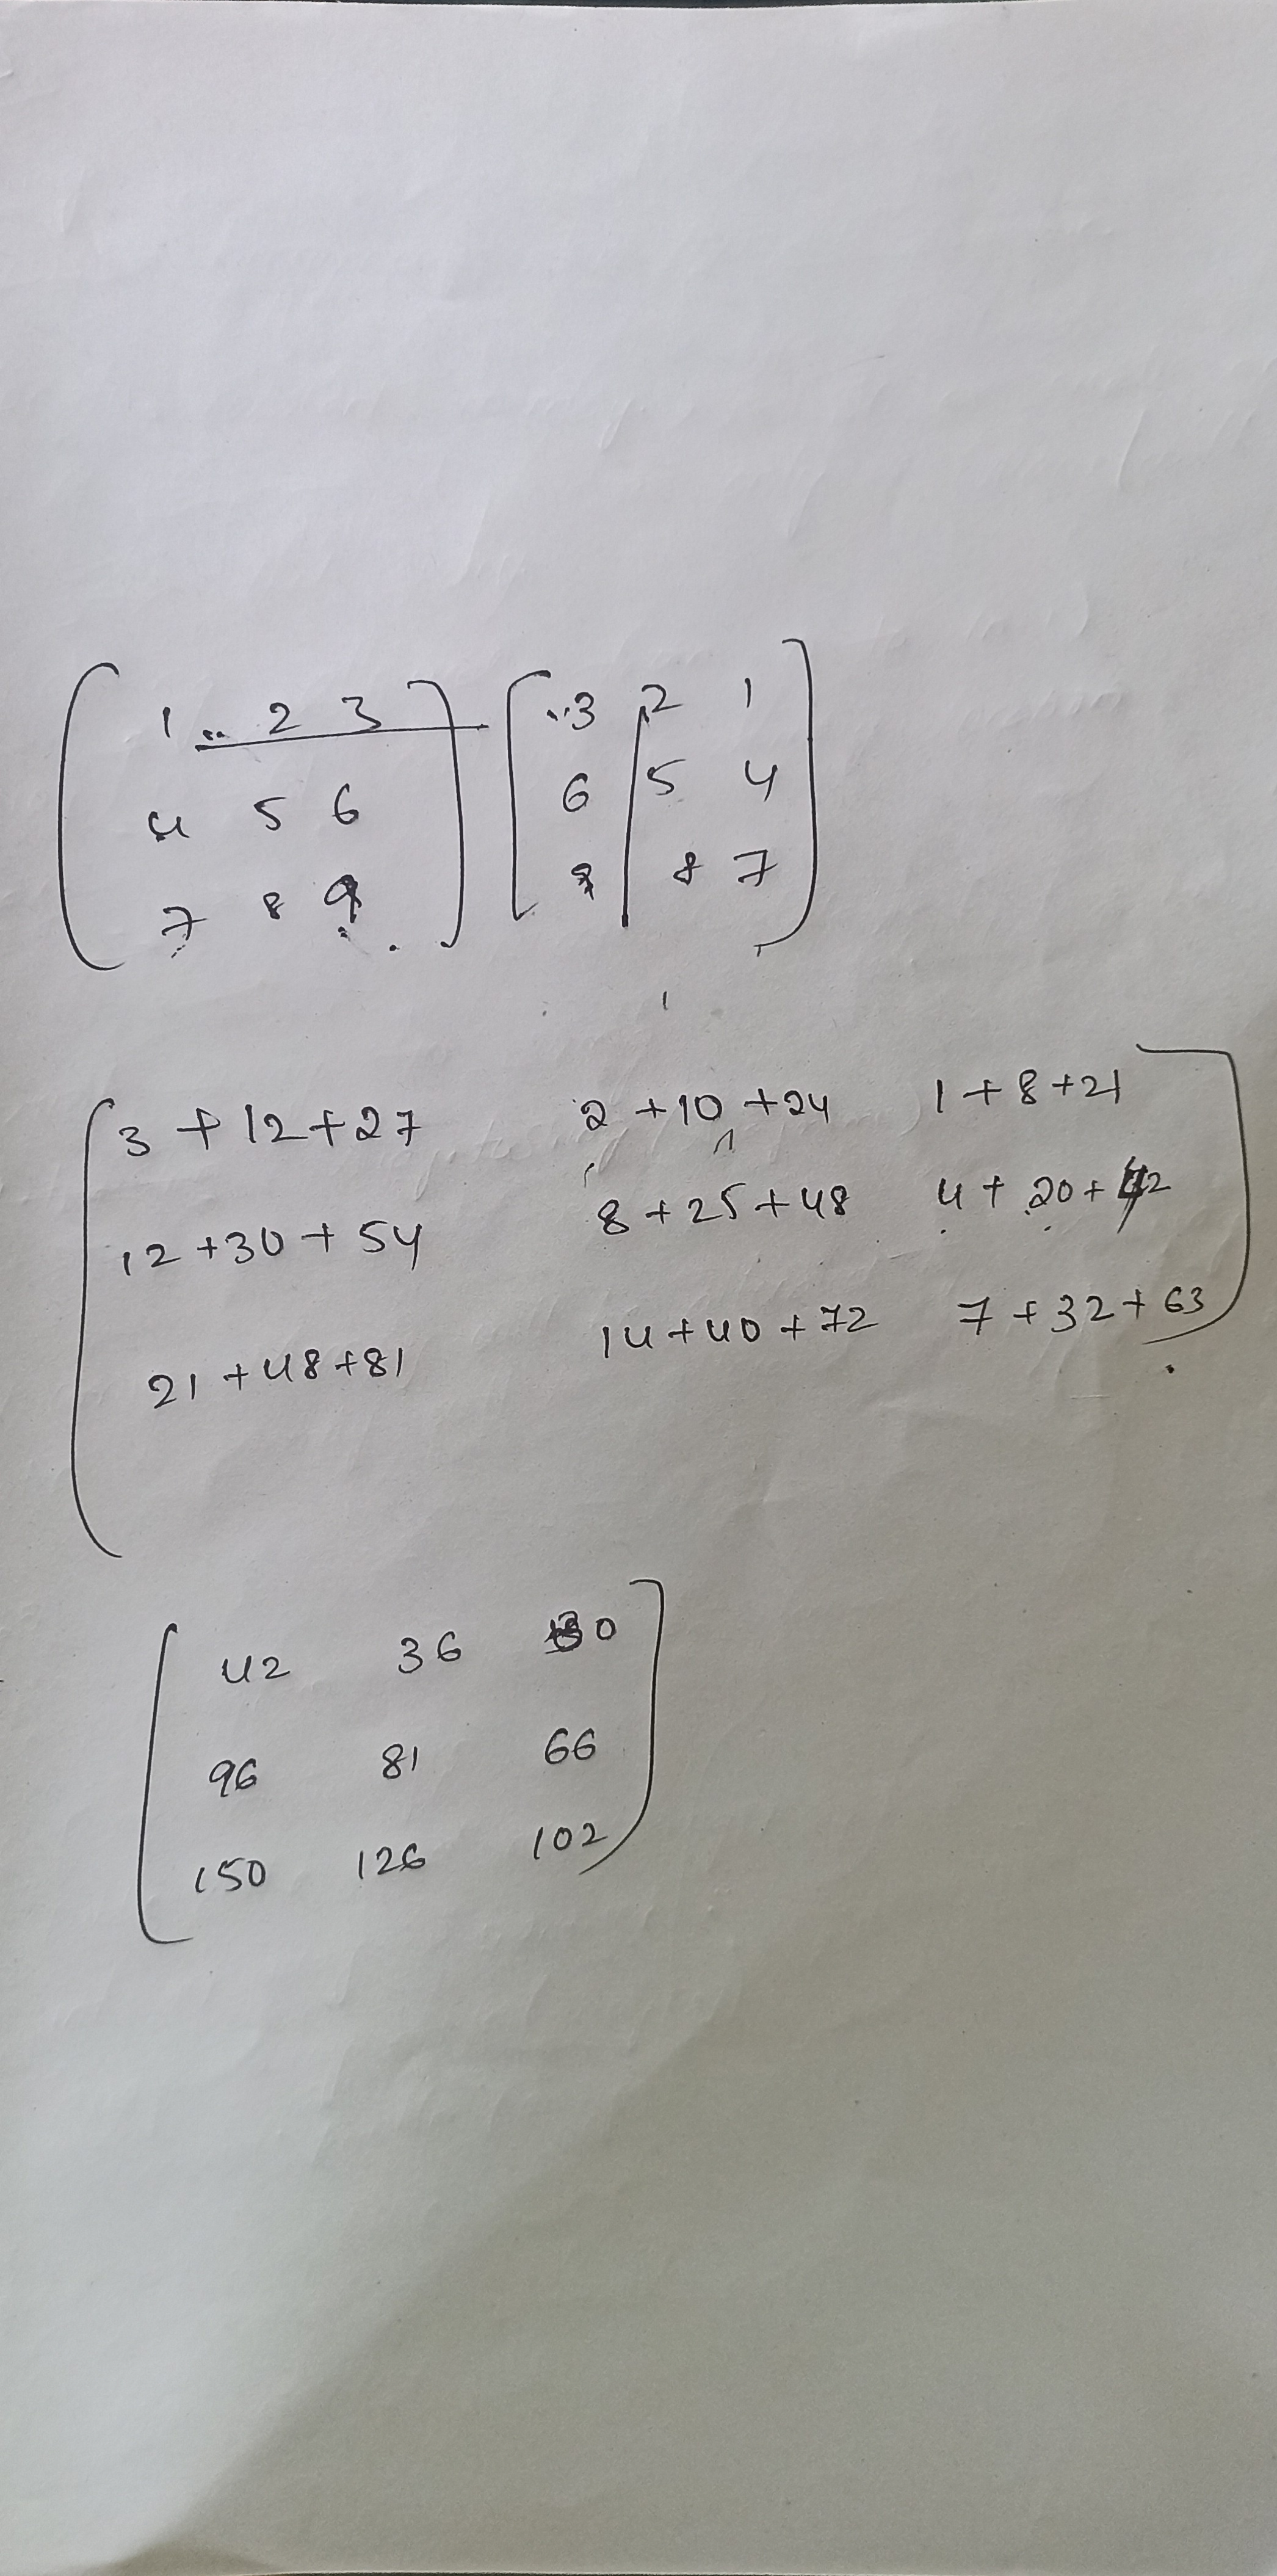 1 2 3 3 2 1
4 5 6 6 5 4
7 8 9 9 8 7
3 + 12 + 27 2 + 10 + 24 1 + 8 + 21
12 + 30 + 54 8 + 25 + 48 4 + 20 + 42
21 + 48 + 81 14 + 40 + 72 7 + 32 + 63
42 36 30
96 81 66
150 126 102